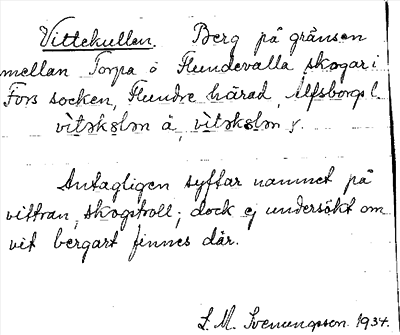 Vittekullen. Berg på gränsen
mellan Torpa o Flundevalla skogar i
Fors socken, Flundre härad, Älfsborgs l.
vìtəkɵlən å, vìtəkɵlən y.
Antagligen syftar namnet på
vittran, skogstroll; dock ej undersökt om
vit bergart finnes där.
L. M. Svenungsson 1934.